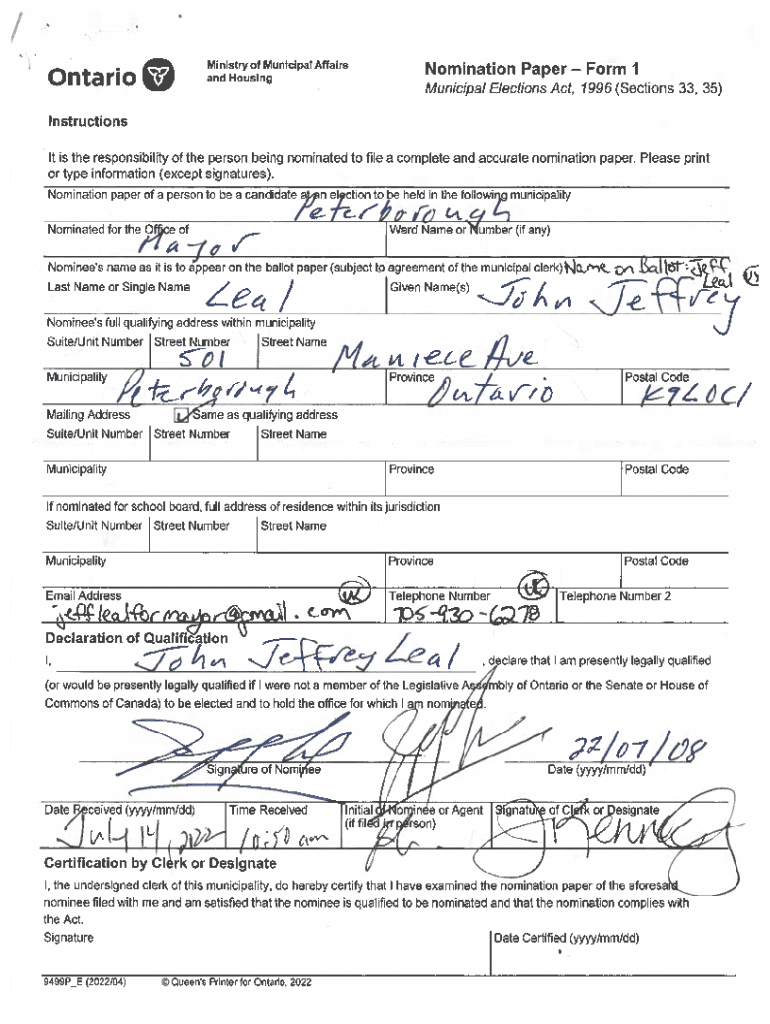 Ontario
Ministry of Municipal Affairs
and Housing
Nomination Paper – Form 1
Municipal Elections Act, 1996 (Sections 33, 35)
Instructions
It is the responsibility of the person being nominated to file a complete and accurate nomination paper. Please print
or type information (except signatures).
Nomination paper of a person to be a candidate at an election to be held in the following municipality
Peterborough
Nominated for the Office of
Mayor
Ward Name or Number (if any)
Nominee's name as it is to appear on the ballot paper (subject to agreement of the municipal clerk) Name on Ballot: Jeff
Leal
Last Name or Single Name
Leal
Given Name(s)
John Jeffrey
Nominee's full qualifying address within municipality
Suite/Unit Number Street Number Street Name
501 Maniece Ave
Municipality Province Postal Code
Peterborough Ontario K9L0C1
Mailing Address Same as qualifying address
Suite/Unit Number Street Number Street Name
Municipality Province Postal Code
If nominated for school board, full address of residence within its jurisdiction
Suite/Unit Number Street Number Street Name
Municipality Province Postal Code
Email Address Telephone Number Telephone Number 2
jefflealformayor@gmail.com 705-930-6278
Declaration of Qualification
I, John Jeffrey Leal , declare that I am presently legally qualified
(or would be presently legally qualified if I were not a member of the Legislative Assembly of Ontario or the Senate or House of
Commons of Canada) to be elected and to hold the office for which I am nominated.
22/07/08
Signature of Nominee Date (yyyy/mm/dd)
Date Received (yyyy/mm/dd) Time Received Initial of Nominee or Agent Signature of Clerk or Designate
(if filed in person)
July 14, 2022 10:50 am
Certification by Clerk or Designate
I, the undersigned clerk of this municipality, do hereby certify that I have examined the nomination paper of the aforesaid
nominee filed with me and am satisfied that the nominee is qualified to be nominated and that the nomination complies with
the Act.
Signature Date Certified (yyyy/mm/dd)
9499P_E (2022/04) © Queen's Printer for Ontario, 2022